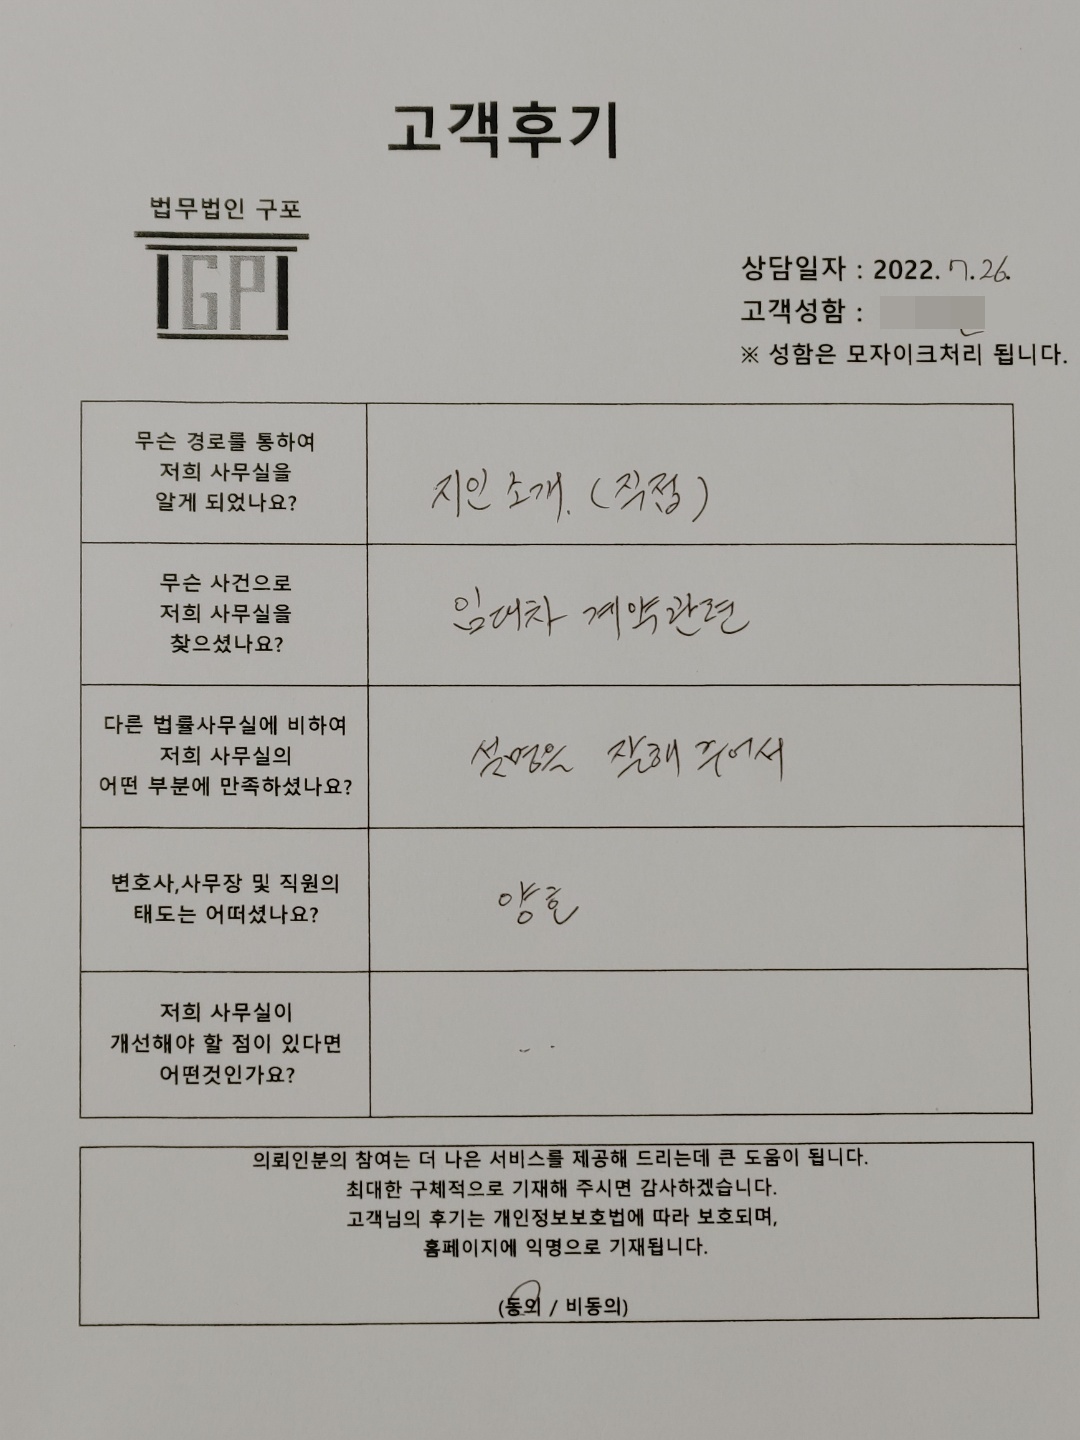 고객후기
법무법인 구포
GP
상담일자 : 2022. 7. 26.
고객성함 :
※ 성함은 모자이크처리 됩니다.
무슨 경로를 통하여
저희 사무실을
알게 되었나요?
지인 소개. (직접)
무슨 사건으로
저희 사무실을
찾으셨나요?
임대차 계약관련
다른 법률사무실에 비하여
저희 사무실의
어떤 부분에 만족하셨나요?
설명을 잘해 주어서
변호사,사무장 및 직원의
태도는 어떠셨나요?
양호
저희 사무실이
개선해야 할 점이 있다면
어떤것인가요?
의뢰인분의 참여는 더 나은 서비스를 제공해 드리는데 큰 도움이 됩니다.
최대한 구체적으로 기재해 주시면 감사하겠습니다.
고객님의 후기는 개인정보보호법에 따라 보호되며,
홈페이지에 익명으로 기재됩니다.
(동의 / 비동의)